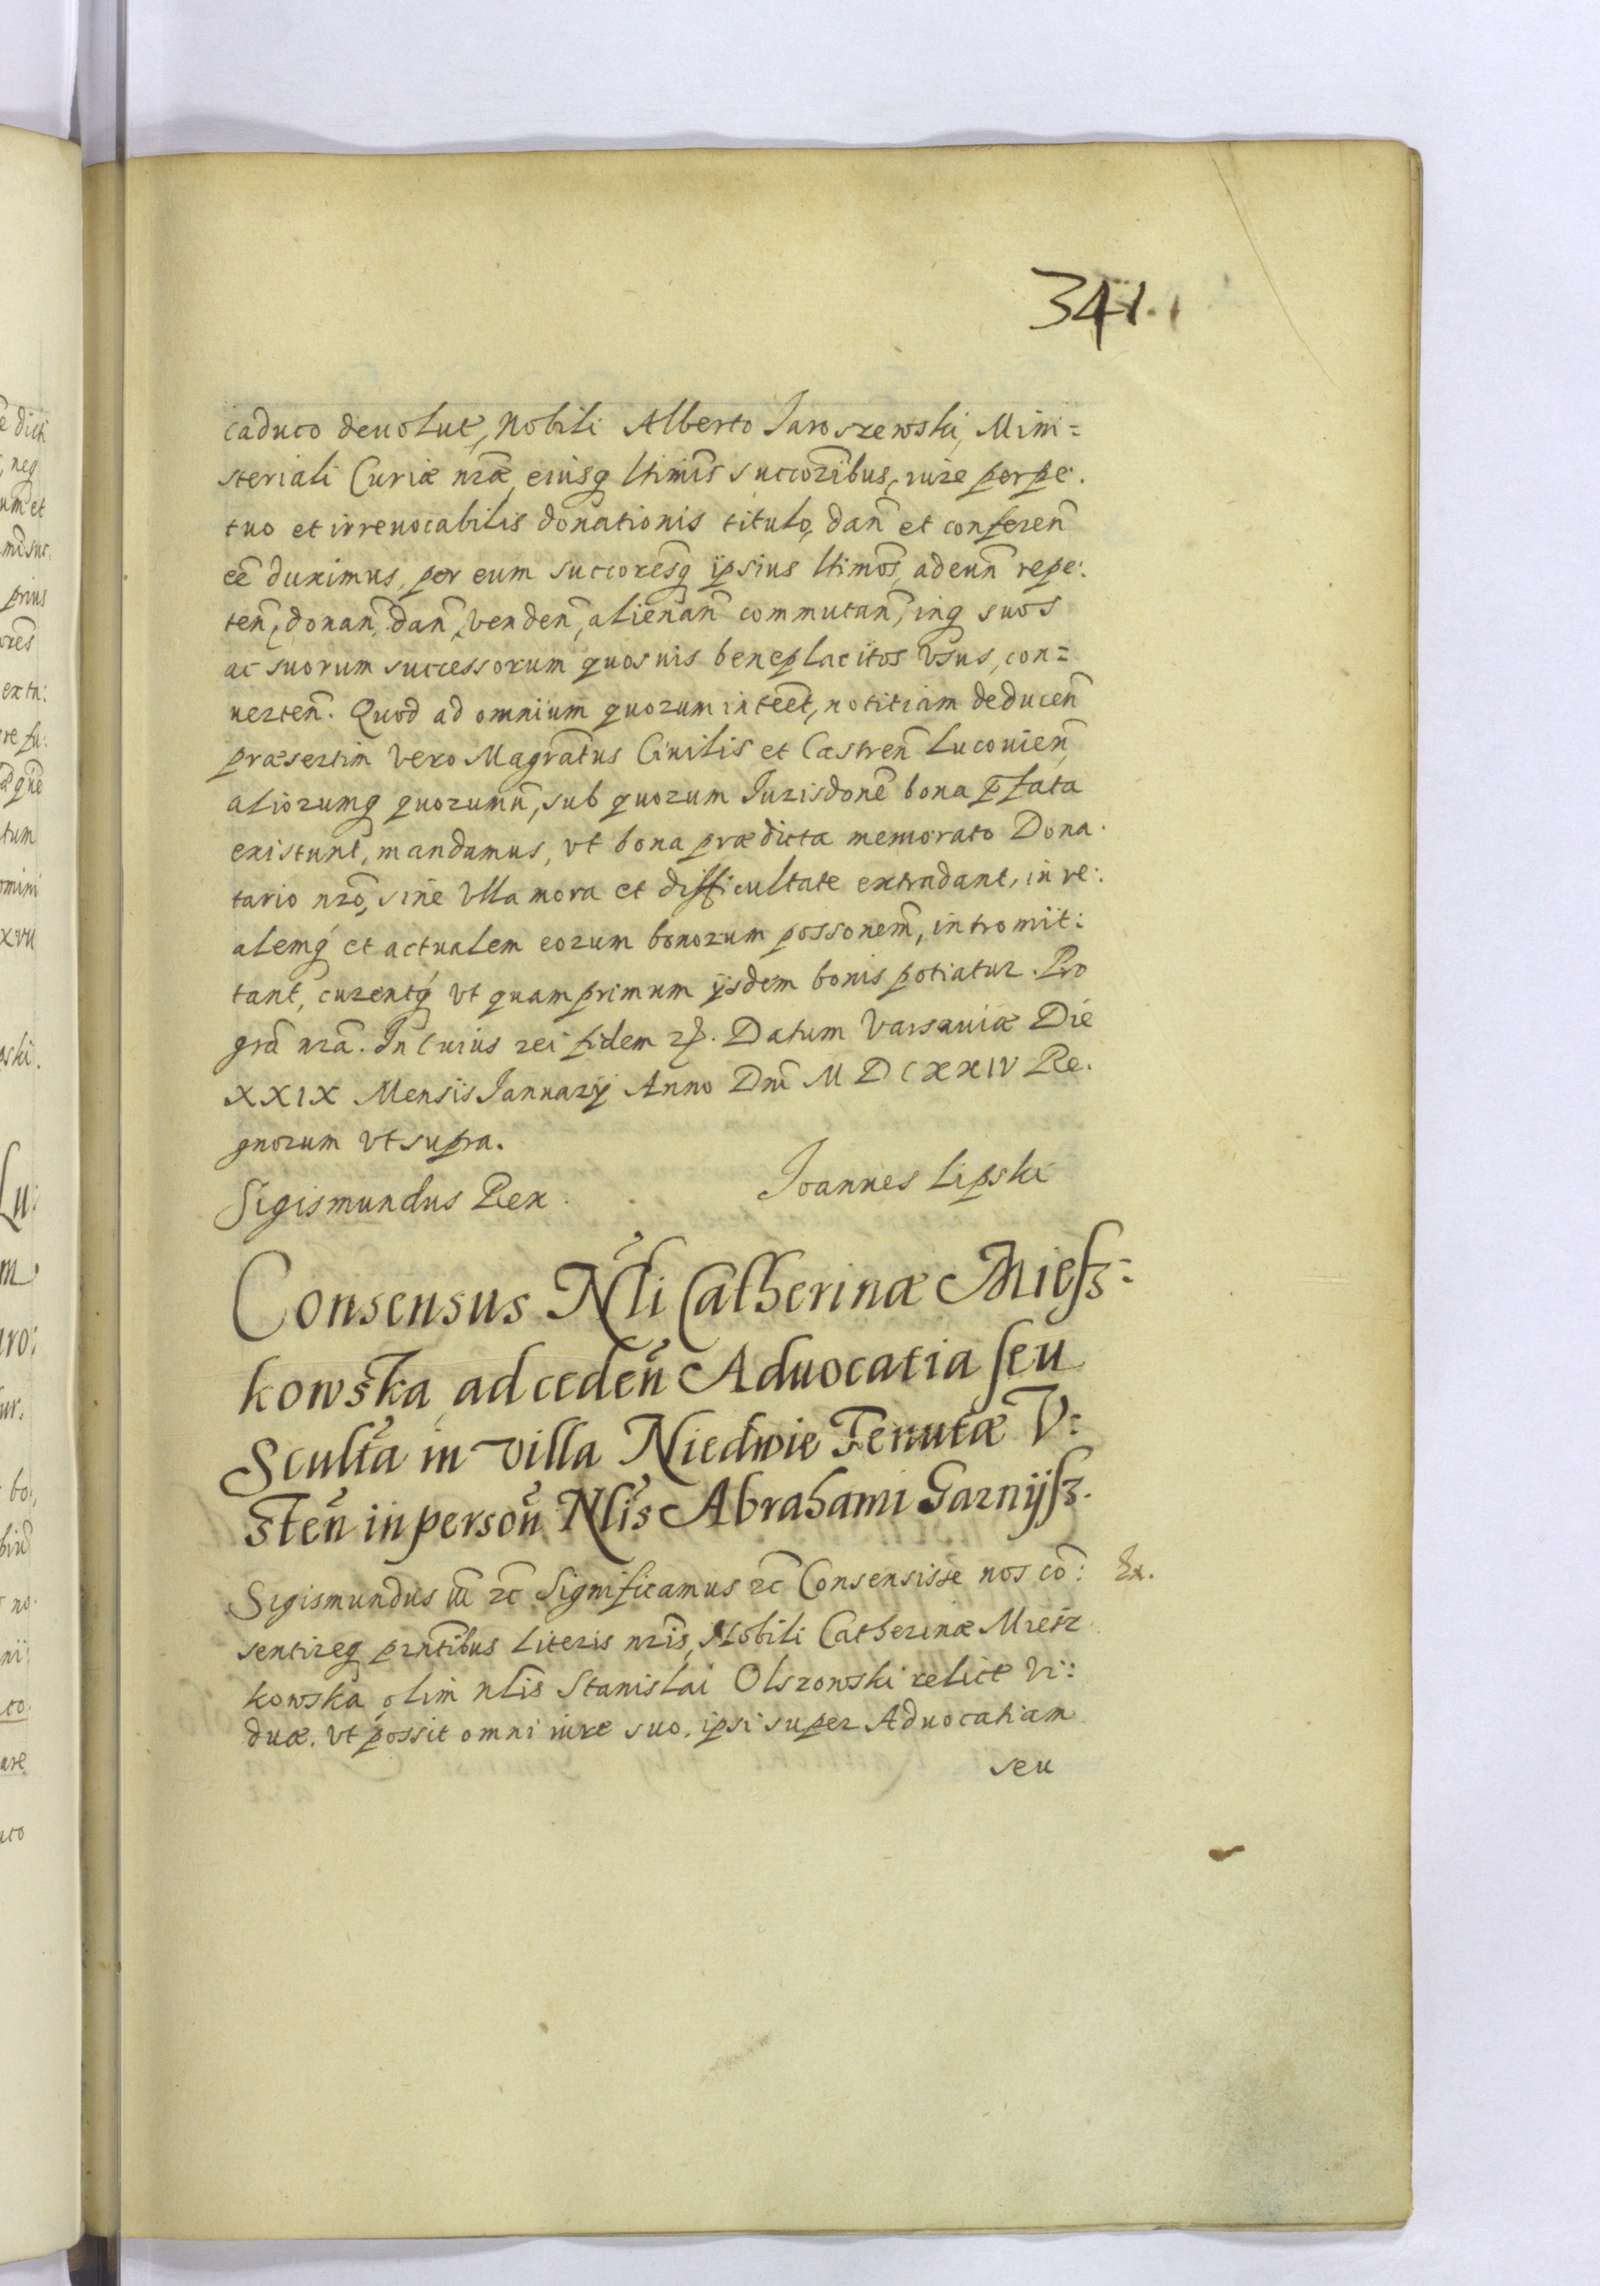 341.
caduco deuolut, Nobili Alberto Jaroszewski, Mini=
steriali Curiæ nræ, eiusq ltimis succoribus, iure perpe.
tuo et irreuocabilis donationis titulo, dañ et conferen̄
eē duximus, per eum succoresq ipsius ltimos, adeun̄ repe:
ten̄, donan̄, dan̄, venden̄, alienan̄ commutan̄, inq suos
ac suorum successorum quosuis beneplacitos vsus, con=
uerten̄. Quod ad omnium quorum inteēt, notitiam deducen̄
præsertim vero Magratus Ciuilis et Castren̄ Lucouien̄,
aliorumq quorumū, sub quorum Jurisdonē bona p̄fata
existunt, mandamus, vt bona prædicta memorato Dona.
tario nrō, sine vlla mora et difficultate extradant, in re:
alemq́ et actualem eorum bonorum possonem̄, intromit:
tant, curentq́ vt quam primum ijsdem bonis potiatur. Pro
grā nrā. In cuius rei fidem etc. Datum Varsauiæ Die
XXIX Mensis Januarij Anno Dnī M D C XXIV Re.
gnorum vt supra.
Sigismundus Rex.
Joannes Lipski
Consensus Nli Catherinæ Miesz=
kowska, ad ceden̄ Aduocatia seu
Sculta in villa Niedwie Tenutæ V=
sten̄ in person̄ Nlis Abrahami Garnijsz.
Sigismundus iii etc Significamus etc Consensisse nos cō:
Ex.
sentireq prntibus literis nris, Nobili Catherinæ Miesz.
kowska, olim nlis Stanislai Olszowski relictæ vi:
duæ. vt possit omni iure suo, ipsi super Aduocatiam
seu